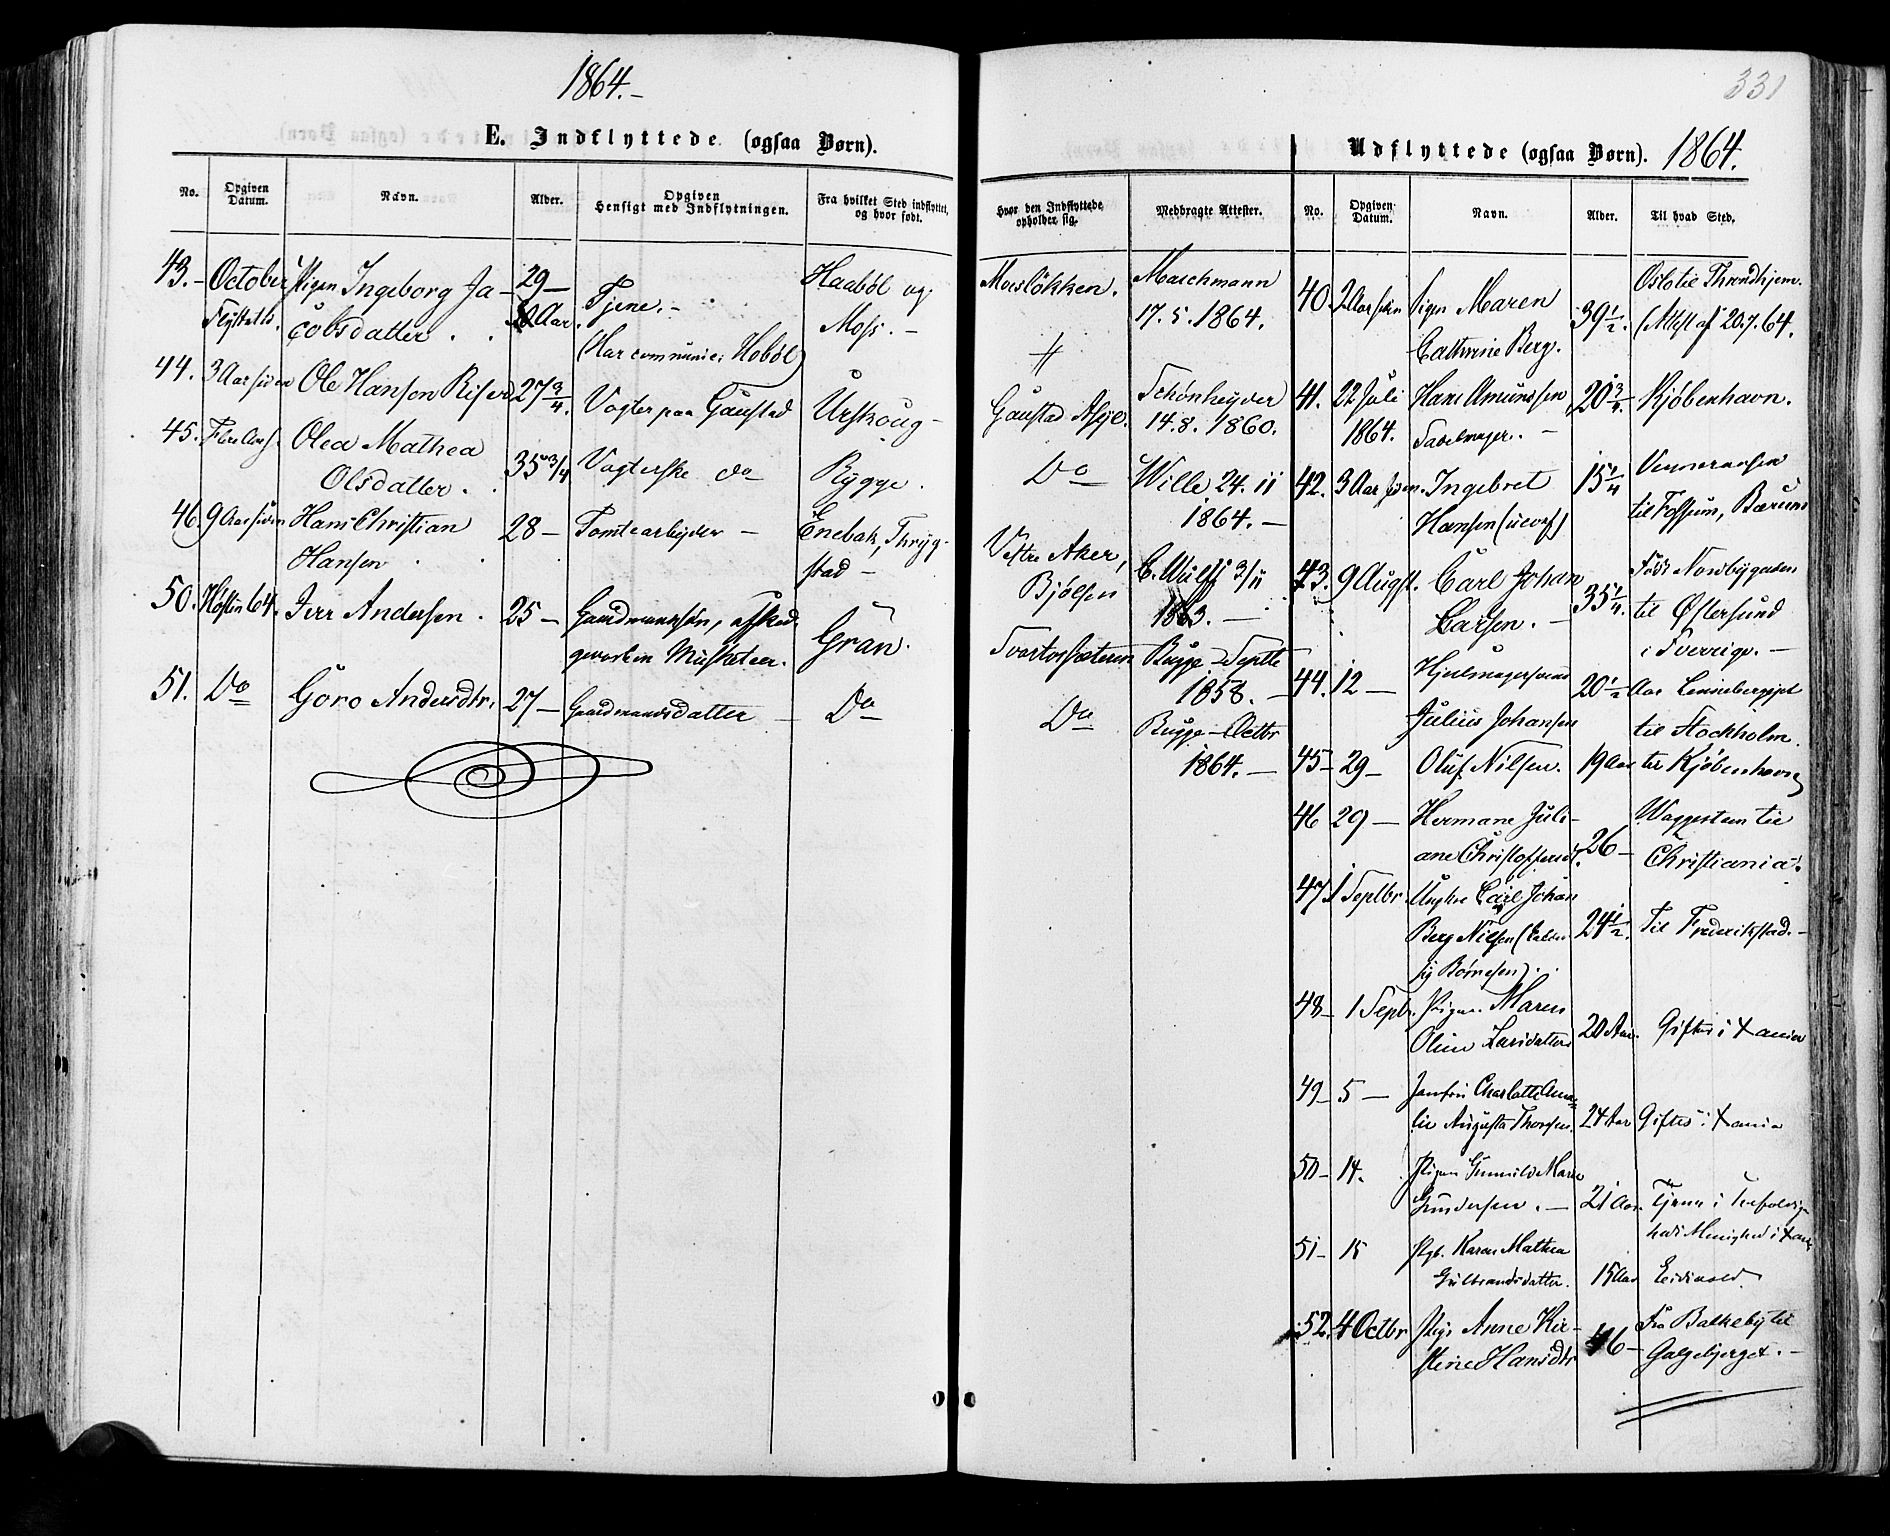 1864.-
E. Indflyttede (ogsaa Børn).
No.
Opgiven Datum.
Navn.
Alder.
Opgiven Hensigt med Indflytningen.
Fra hvilket Sted indflyttet, og hvor født.
43.- October Pigen Ingeborg Ja- 29- Tjene.- Haabøl og
cobsdatter. Aar. (Har communic. i Hobøl) Moss.-
44. 3 Aar siden Ole Hansen Riser 27 3/4. Vogter paa Gaustad Urskoug-
45. Olea Mathea
Olsdatter. 35 3/4 Vogterske do Rygge.
46. 9 Aar siden Hans Christian 28- Tomtearbejder- Enebak, Thryg-
Hansen stad-
50. Høsten 64. Iver Andersen. 25- Gaardmandssøn, afsked.
Musketeer. Gran.
51. Do Goro Andersdtr. 27- Gaardmandsdatter- Do
331
Hvor den Indflyttede opholder sig.
Medbragte Attester.
Moesløkken. Maschmann
17.5.1864.
Gaustad Asyl. Schønheyder
14.8.1860.
Do Wille 24.11
1864.-
Vestre Aker, C. Wulff 3/11
Bjølsen 1863.-
Svartorsæteren Bugge-Septbr
1858.-
Do Bugge-Octbr
1864.-
Udflyttede (ogsaa Børn). 1864.
No.
Opgiven Datum.
Navn.
Alder.
Til hvad Sted.
40. 2 Aar siden Pigen Maren 39 1/2. Oslo til Throndhjem.
Cathrine Berg. (Attest af 20.7.64.
41. 22 Juli Hans Amundsen 20 3/4- Kjøbenhavn.
1864. Sadelmager.-
42. 3 Aar siden. Ingebret 15 1/4
Hansen til Fossum, Bærum
43. 9 Augst. Carl Johan 35 1/4. Født Nordbygaden
Larsen.- til Østersund
i Sverrige.-
44. 12- Hjulmagersvend 20 1/2 Aar
Julius Johansen til Stockholm.
45- 29- Oluf Nilsen. 19 Aar til Kjøbenhavn
46 29- Hermane Juli- 26- Waggestem til
ane Christoffersdt. Christiania.
47. 1 Septbr. Ungkrl Carl Johan 24 1/2. Til Frederikstad.-
Berg Nilsen (kalder
sig Børnesen).
48- 1 Septbr. Pigen Maren
Oline Larsdatter 20 Aar. Giftes i Xania
49- 5- Jomfru Charlotte Ama-
lie Augusta Thorsen. 24 Aar Giftes i Xania
50- 14. Pigen Gunnild Marie
Gundersen.- 21 Aar. Tjene i Trefoldig-
heds Menighed i Xania
51- 15 Pgb. Karen Mathea
Gulbrandsdatter. 15 Aar Eidsvold
52. 4 Octbr Pige Anne Kir- 46- Fra Balkeby til
stine Hansdtr Galgebjerget.-